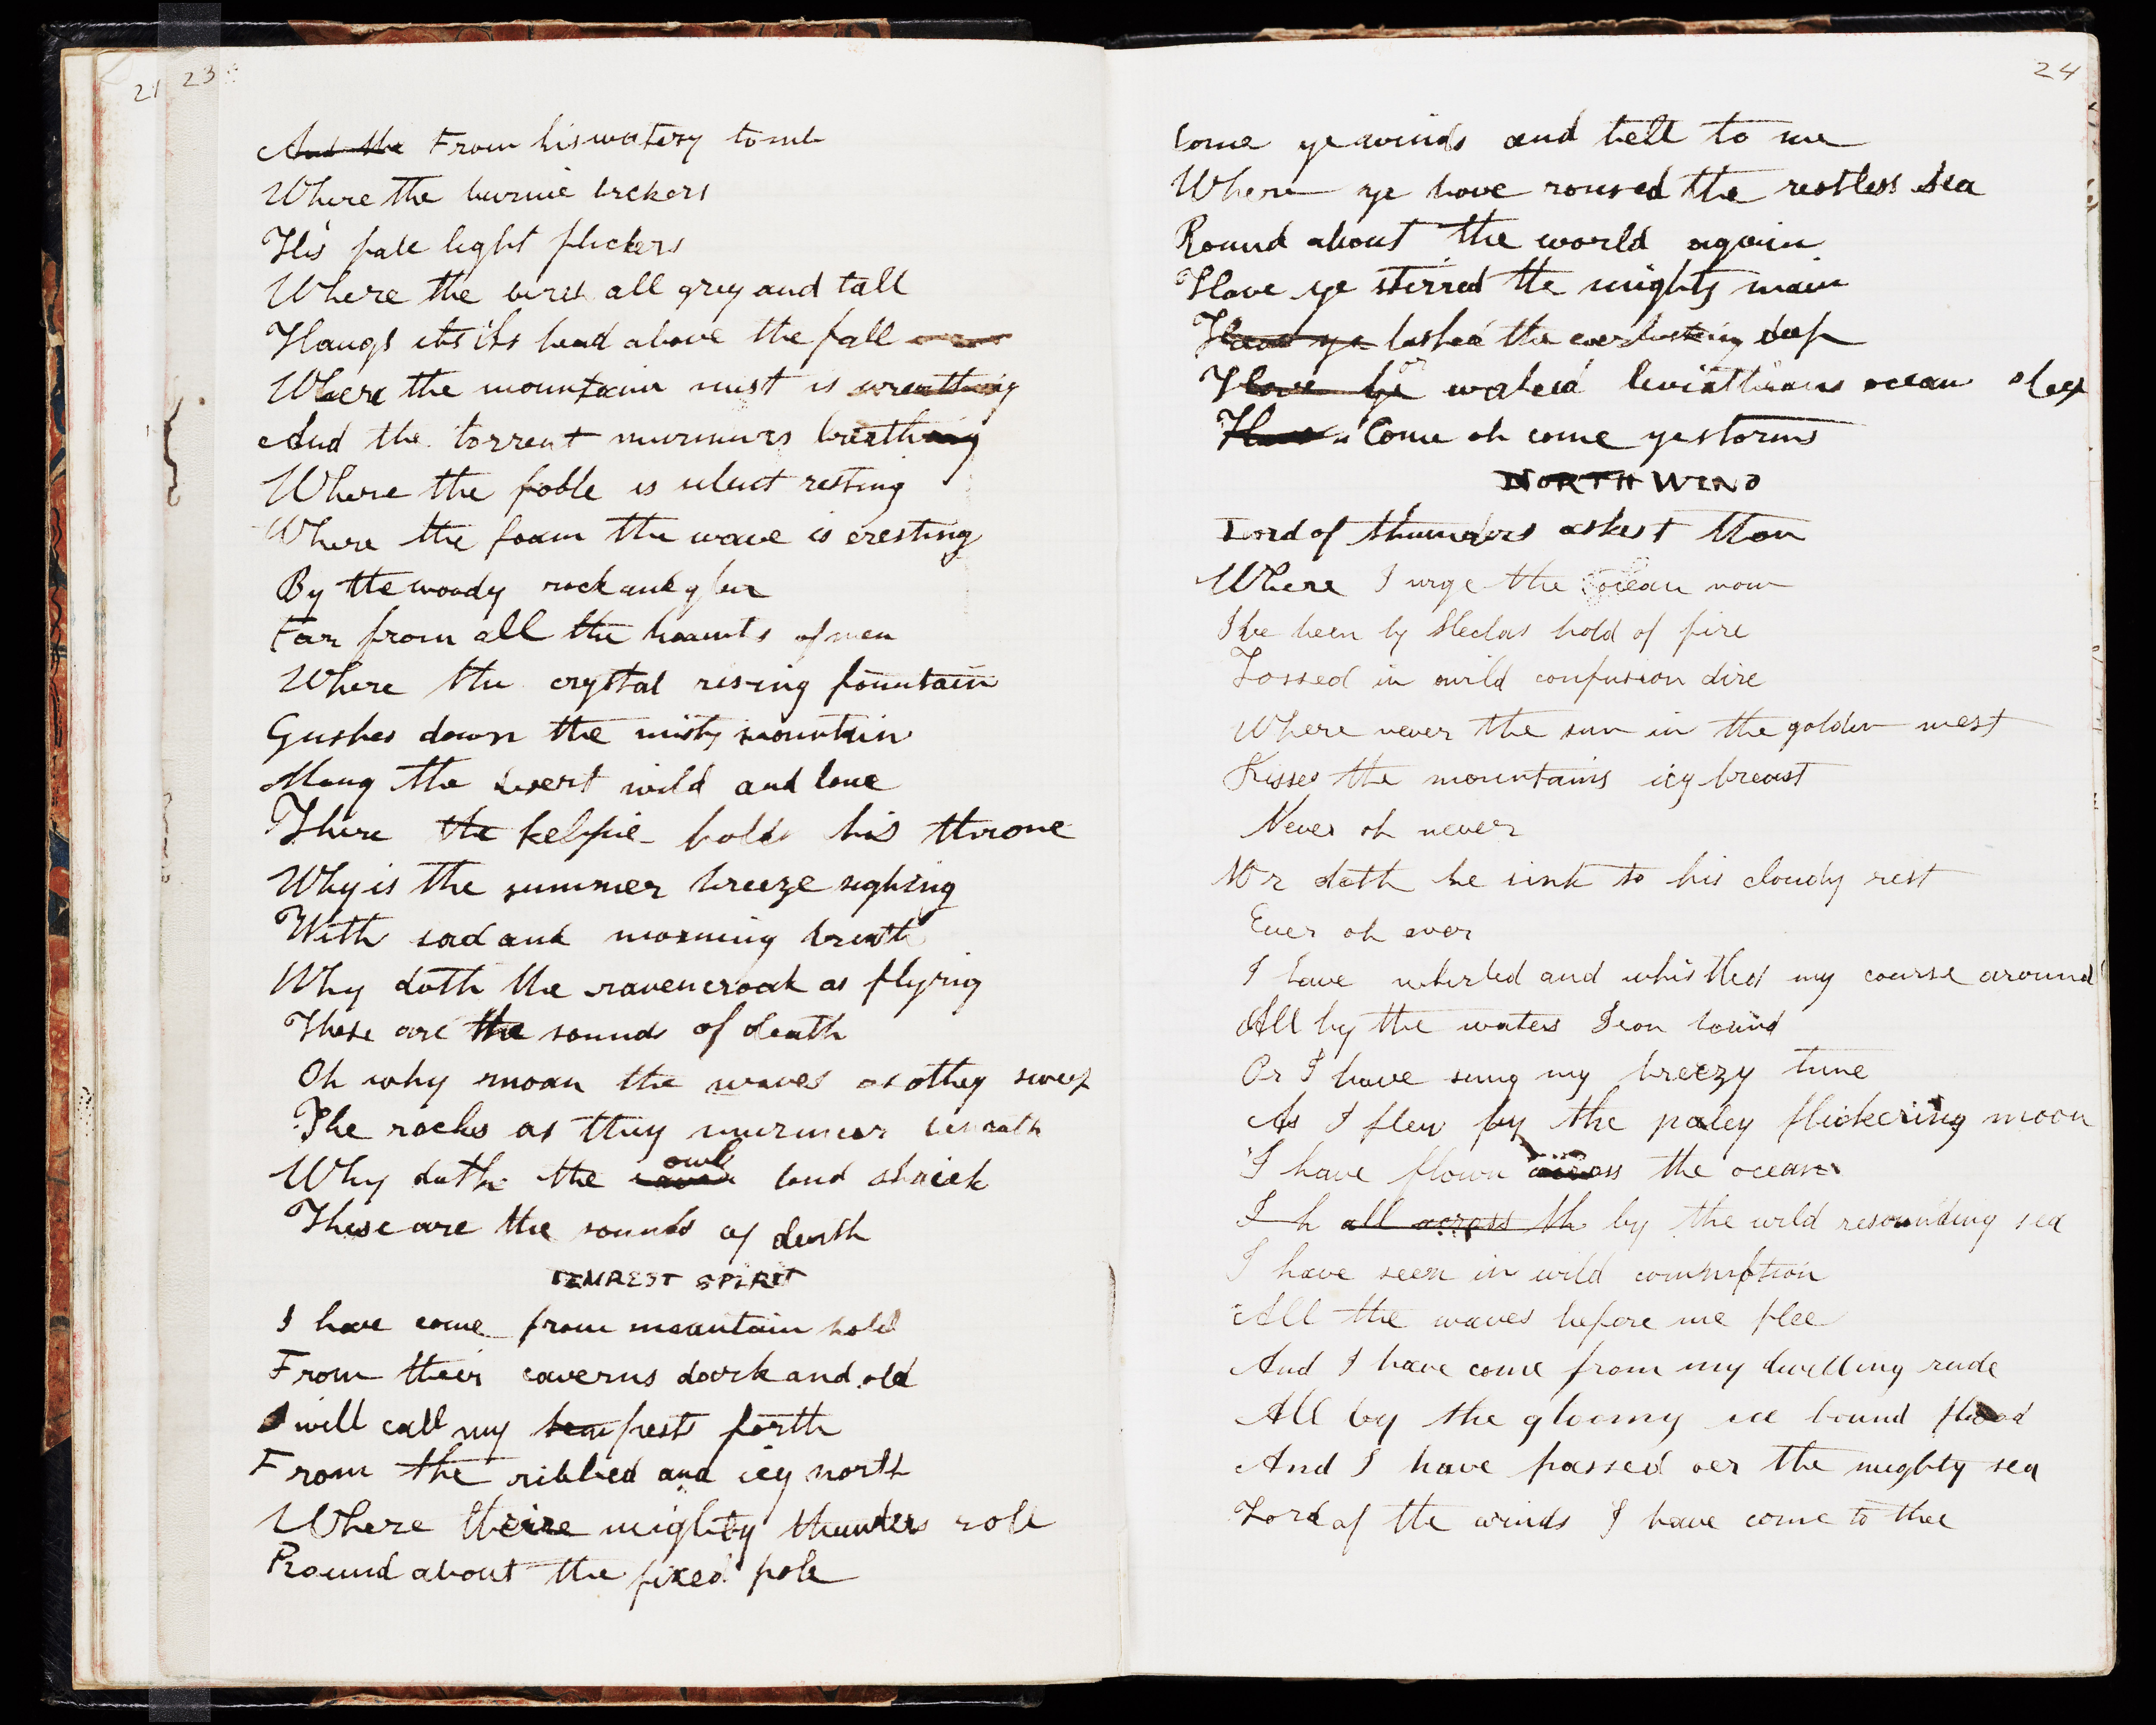 21 23
And the From his watery tomb
Where the burnie bickers
His pale light flickers
Where the birch all grey and tall
Hangs its its head above the fall
Where the mountain mist is wreathing
And the torrent murmurs breathing
Where the foble is silent resting
Where the foam the wave is cresting
By the woody rock and glen
Far from all the haunts of men
Where the crystal rising fountain
Gushes down the misty mountain
Mong the desert wild and lone
There the kelpie holds his throne
Why is the summer breeze sighing
With sad and morning breath
Why doth the raven croak as flying
These are the sounds of death
Oh why moan the waves as othey sweep
The rocks as they murmur beneath
Why doth the owl loud shriek
These are the sounds of death
TEMPEST SPIRIT
I have come from mountain hold
From their caverns dark and old
I will call my tempests forth
From the ribbed and icy north
Where theire mighty thunders roll
Round about the fixed pole
24
Come ye winds and tell to me
Where ye have roused the restless sea
Round about the world again
Have ye stirred the mighty main
Have ye lashed the everlasting deep
Have ye or waked leviathans ocean sleep
Have Come oh come ye storms
NORTH WIND
Lord of thunders askest thou
Where I urge the ocean now
Ive been by Heclas hold of fire
Tossed in wild confusion dire
Where never the sun in the golden west
Kisses the mountains icy breast
Never oh never
Nor doth he sink to his cloudy rest
Ever oh ever
I have whirled and whistled my course around
All by the waters Icon bound
Or I have sung my breezy tune
As I flew by the paley flickering moon
I have flown across the ocean
I h all across th by the wild resounding sea
I have seen in wild commotion
All the waves before me flee
And I have come from my dwelling rude
All by the gloomy ice bound flood
And I have passed oer the mighty sea
Lord of the winds I have come to thee